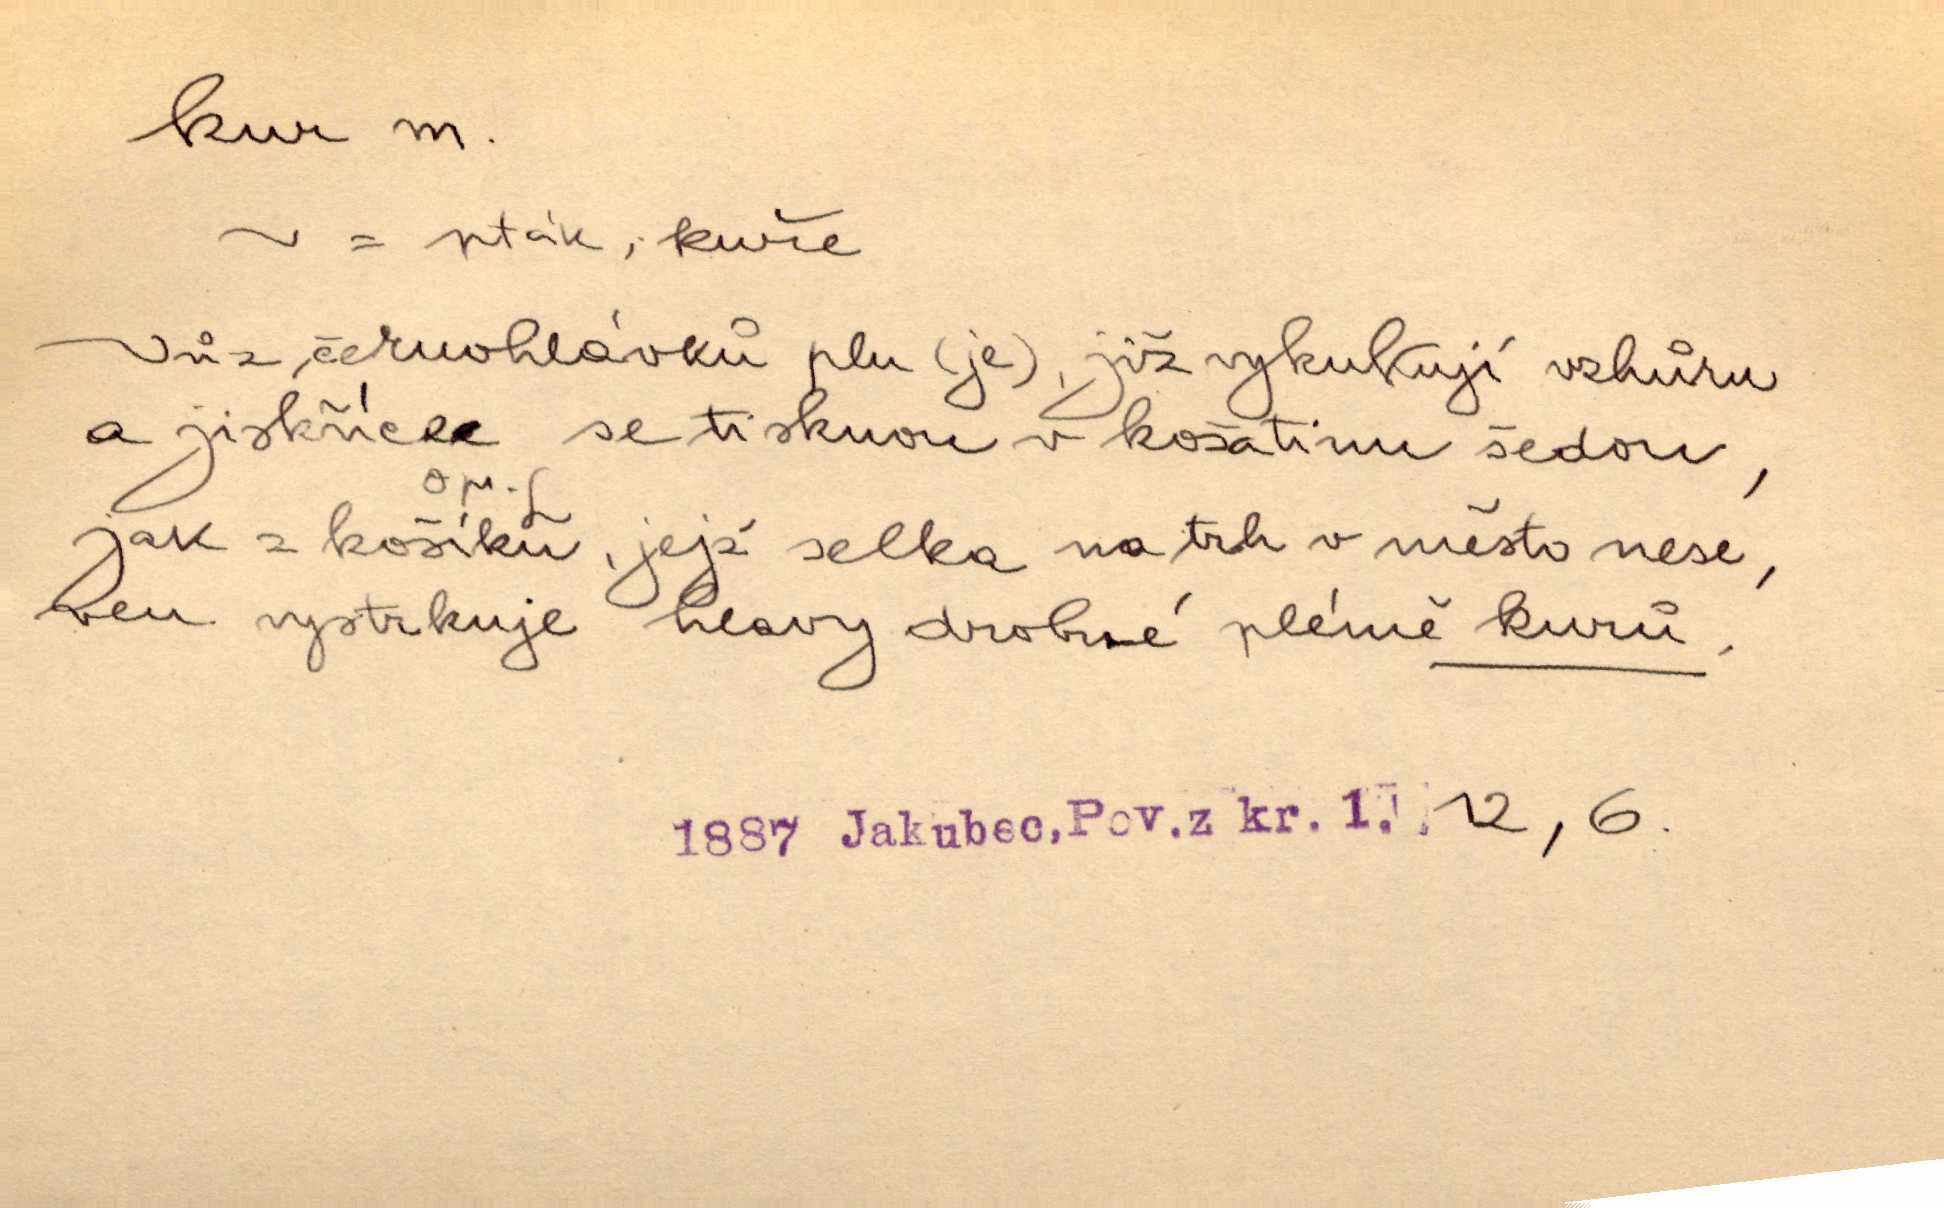 kur m.
~ = pták, kuře
Vůz černohlávků plu (je), již vykukují vzhůru
a jiskříce se tisknou v košatinu šedou,
opr.
jak z košíků, jejž selka na trh v město nese,
ven vystrkuje hlavy drobné plémě kurů.
1887 Jakubec, Pov. z kr. 1. 12, 6.